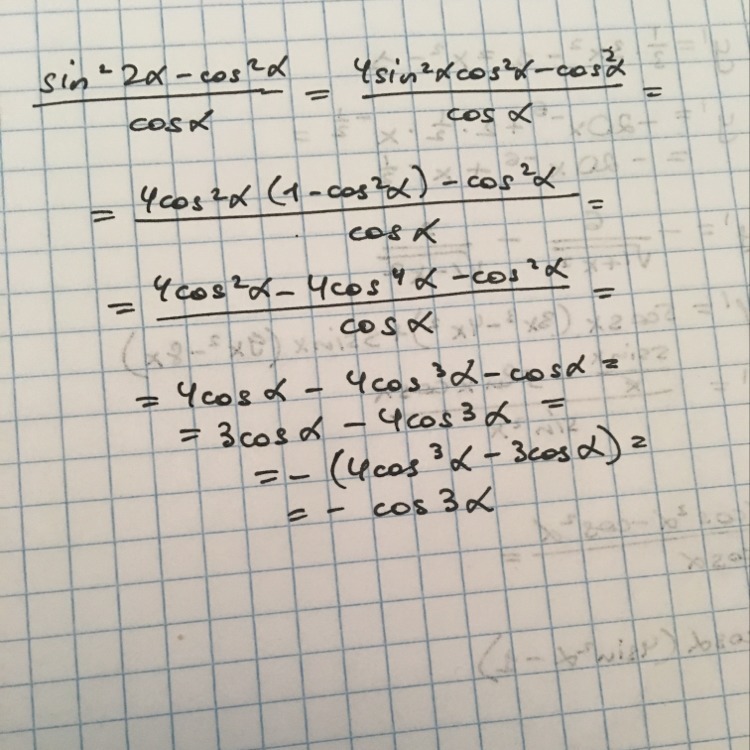 (sin²2α - cos²α)/(cosα) = (4sin²αcos²α - cos²α)/(cosα) =
= (4cos²α (1 - cos²α) - cos²α)/(cosα) =
= (4cos²α - 4cos⁴α - cos²α)/(cosα) =
= 4cosα - 4cos³α - cosα =
= 3cosα - 4cos³α =
= - (4cos³α - 3cosα) =
= - cos3α